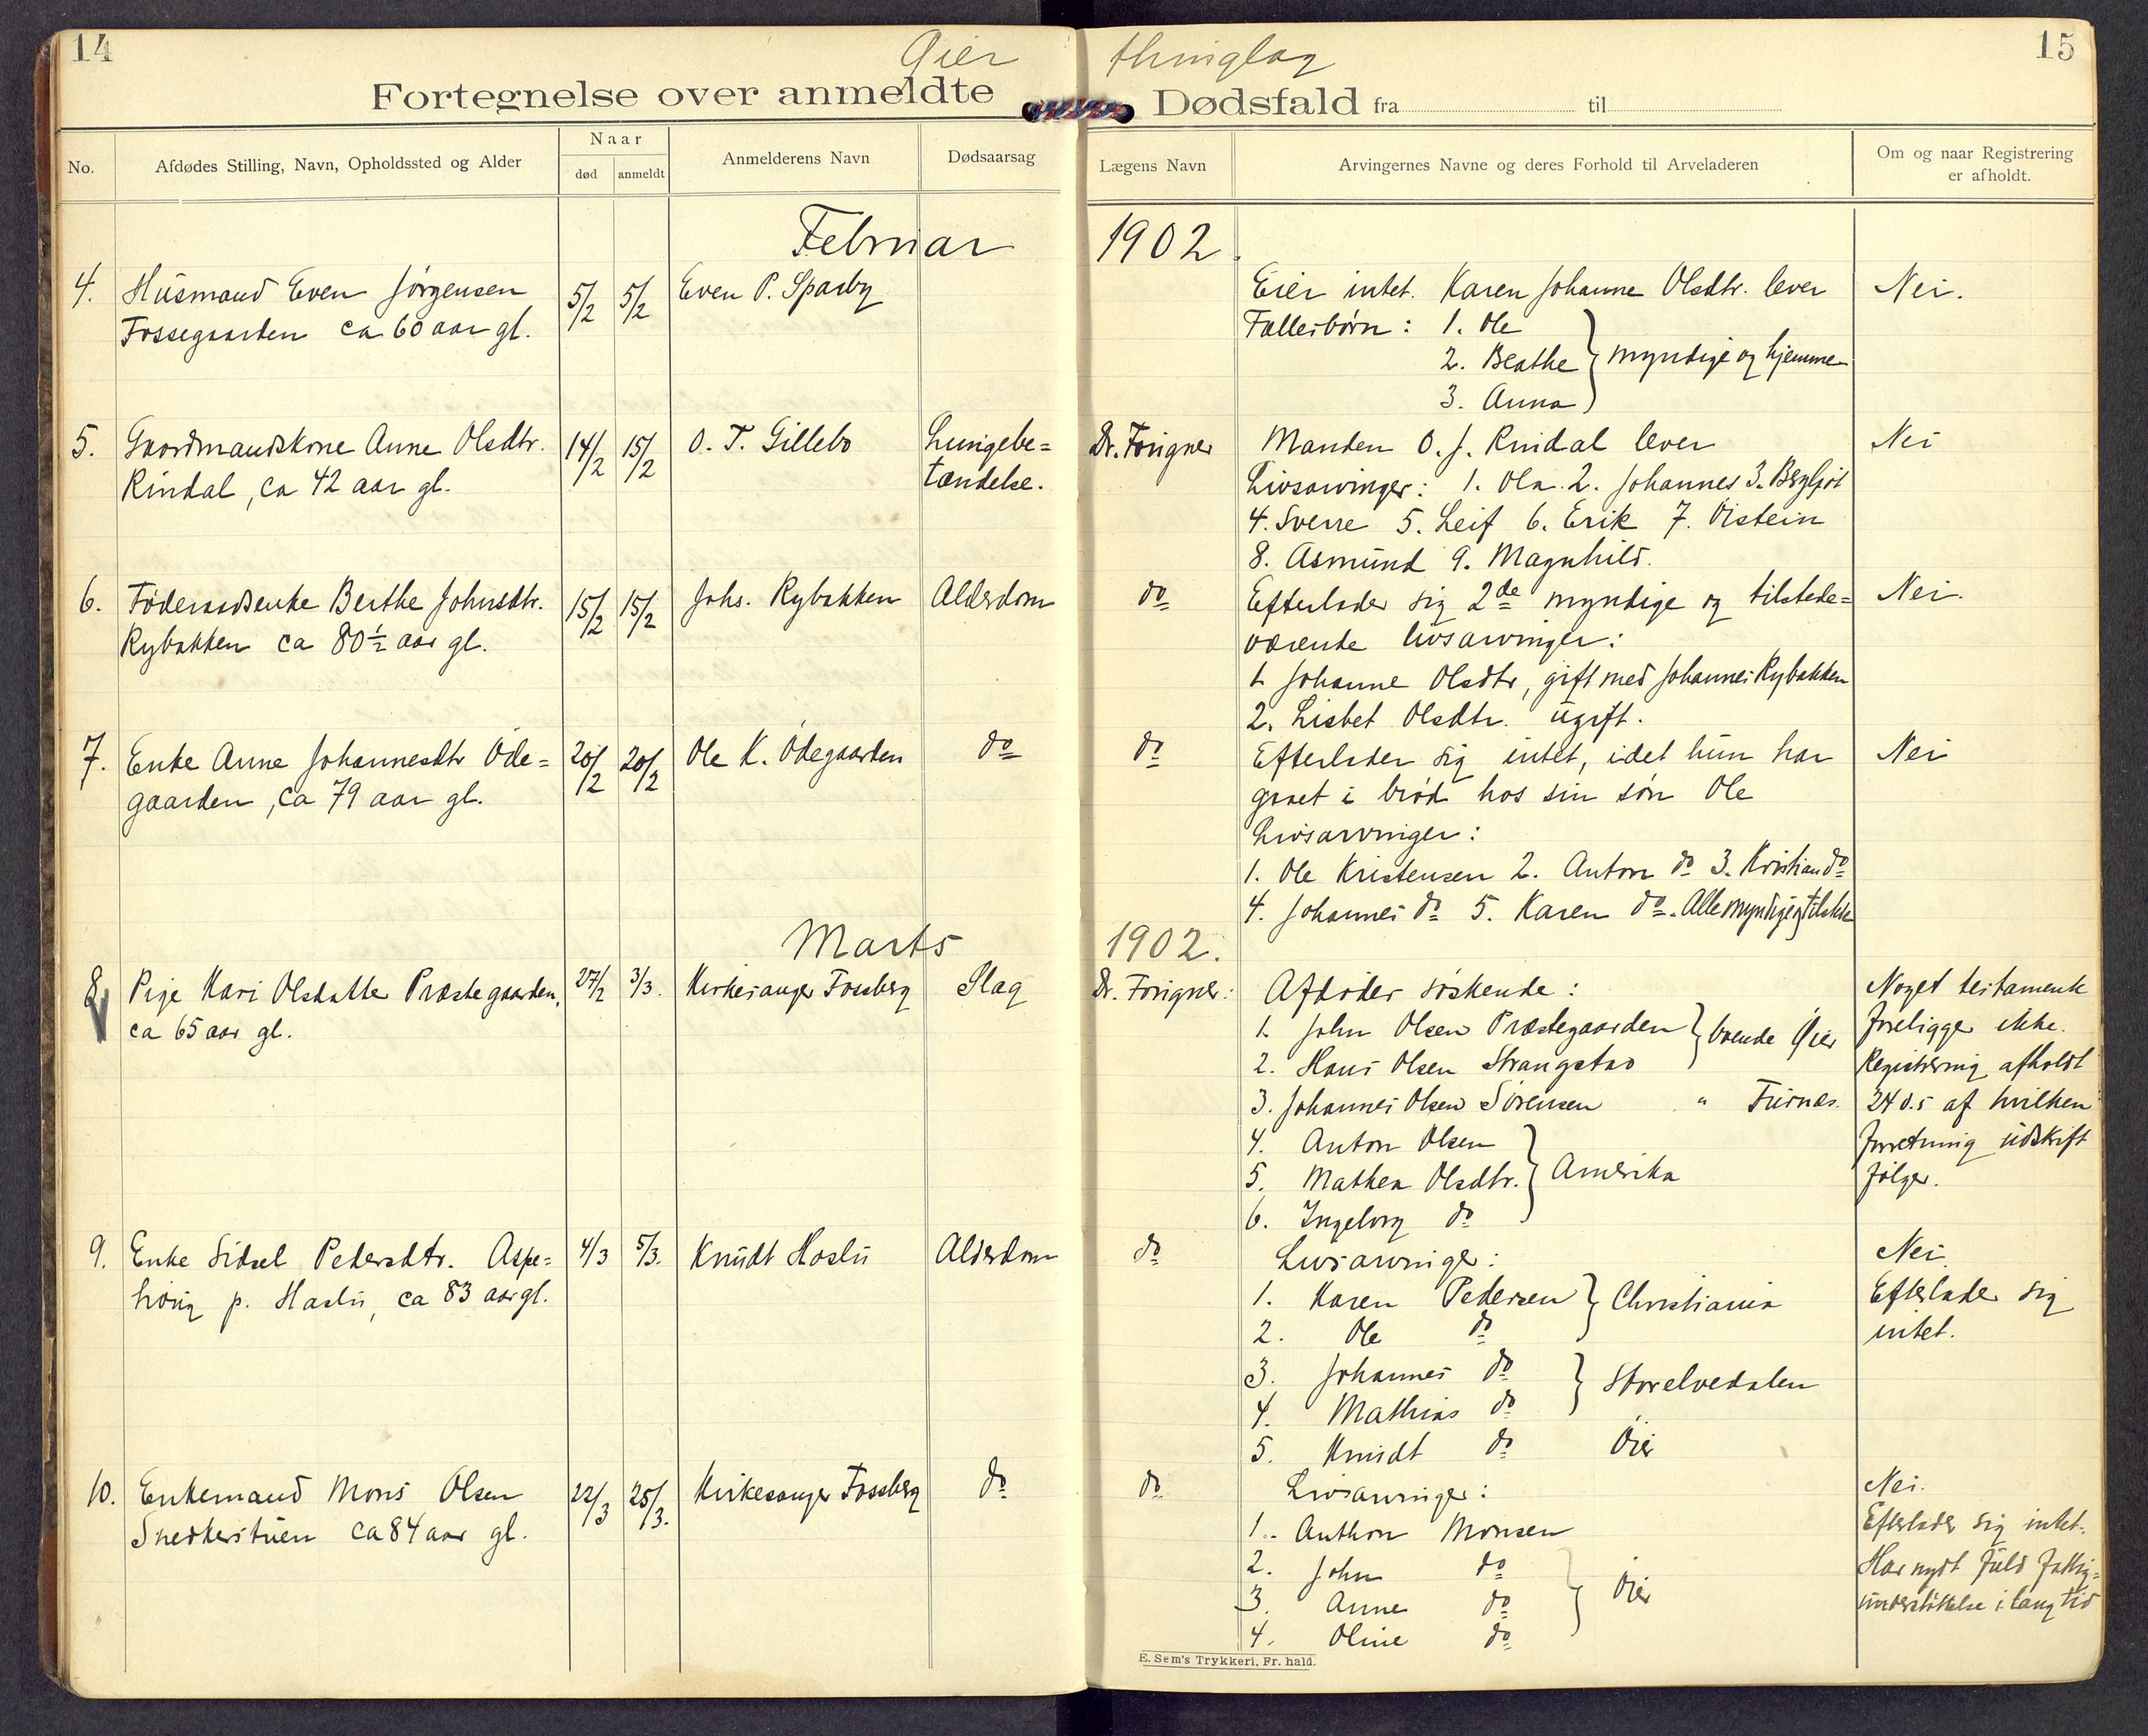 14
Øier thinglag
15
Fortegnelse over anmeldte Dødsfald fra til
No.
Afdødes Stilling, Navn, Opholdssted og Alder
Naar
død
anmeldt
Anmelderens Navn
Dødsaarsag
Lægens Navn
Arvingernes Navne og deres Forhold til Arveladeren
Om og naar Registrering
er afholdt.
Februar 1902.
4. Husmand Even Jørgensen
Fossegaarden ca 60 aar gl.
5/2 5/2 Even P. Sparby
Eier intet. Karen Johanne Olsdtr. lever
Fællesbørn: 1. Ole
2. Beathe } myndige og hjemme
3. Anna
Nei.
5. Gaardmandskone Anne Olsdtr.
Rindal, ca 42 aar gl.
14/2 15/2 O. T. Gillebo
Lungebe=
tændelse.
Dr. Forigner
Manden O. J. Rindal lever
Livsarvinger: 1. Ola 2. Johannes 3. Bergljot
4. Sverre 5. Leif 6. Erik 7. Øistein
8. Asmund 9. Magnhild.
Nei
6. Føderaadsenke Berthe Johnsdtr.
Rybakken ca 80 1/2 aar gl.
15/2 15/2 Johs. Rybakken Alderdom
do
Efterlader sig 2de myndige og tilstede=
værende livsarvinger:
1. Johanne Olsdtr, gift med Johannes Rybakken
2. Lisbet Olsdtr. ugift.
Nei.
7. Enke Anne Johannesdtr Øde=
gaarden, ca 79 aar gl.
20/2 20/2 Ole K. Ødegaarden do
do
Efterlader sig intet, idet hun har
gaaet i brød hos sin søn Ole
Livsarvinger:
1. Ole Kristensen 2. Anton do 3. Kristian do
4. Johannes do 5. Karen do. Alle myndige og tilstede
Nei
Marts 1902.
8. Pige Kari Olsdatter Præstegaarden,
ca 65 aar gl.
27/2 3/3. Kirkesanger Fossberg Slag
Dr. Forigner:
Afdødes søskende:
1. John Olsen Præstegaarden
2. Hans Olsen Strangstad } boende Øier
3. Johannes Olsen Sørensen " Furnæs.
4. Anton Olsen
5. Mathea Olsdtr. } Amerika
6. Ingeborg do
Noget testamente
foreligger ikke.
Registrering afholdt
24 d.s af hvilken
forretning udskrift
følger.
9. Enke Sidsel Pedersdtr. Aspe=
haug p. Haslu, ca 83 aar gl.
4/3 5/3. Knudt Haslu Alderdom
do
Livsarvinger:
1. Karen Pedersen
2. Ole do } Christiania
3. Johannes do
4. Mathias do } Storelvedalen
5. Knudt do Øier
Nei.
Efterlader sig
intet.
10. Enkemand Mons Olsen
Snedkerstuen ca 84 aar gl.
22/3 25/3. Kirkesanger Fossberg do
do
Livsarvinger:
1. Anthon Monsen
2. John do
3. Anne do } Øier
4. Oline do
Nei.
Efterlader sig intet.
Har nydt fuld fattig=
understøttelse i lang tid
E. Sem's Trykkeri, Fr. hald.